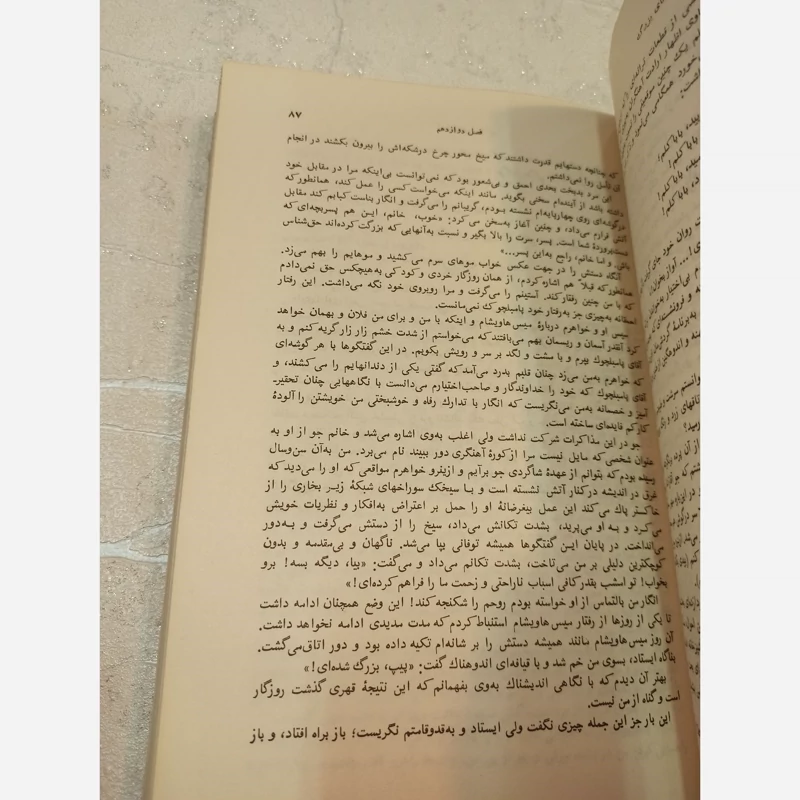 فصل دوازدهم
۸۷
که چنانچه دستهایم قدرت داشتند که سیخ محور چرخ درشکه‌اش را بیرون بکشند در انجام
آن تأمل روا نمی‌داشتم.
این مرد بدبخت بعدی احمق و بی‌شعور بود که نمی‌توانست بی‌اینکه مرا در مقابل خود
داشته باشد از آینده‌ام سخنی بگوید. مانند اینکه می‌خواست کسی را عمل کند، همانطور که
در گوشه‌ای روی چهارپایه‌ام نشسته بودم، گریبانم را می‌گرفت و انگار بناست کبابم کند مقابل
آتش قرارم می‌داد، و چنین آغاز به‌سخن می‌کرد: «خوب، خانم، این هم پسربچه‌ای که
دست‌پرورده شما است. پسر، سرت را بالا بگیر و نسبت به‌آنهایی که بزرگت کرده‌اند حق‌شناس
باش. و اما خانم، راجع به‌این پسر...»
آنگاه دستش را در جهت عکس خواب موهای سرم می‌کشید و موهایم را بهم می‌زد.
همانطور که قبلاً هم اشاره کردم، از همان روزگار خردی و کودکی به‌هیچکس حق نمی‌دادم
با من چنین رفتار کند. آستینم را می‌گرفت و مرا روبروی خود نگه می‌داشت. این رفتار
احمقانه به‌چیزی جز به‌رفتار خود پامبلچوک نمی‌مانست.
سپس او و خواهرم دربارهٔ میس‌هاویشام و اینکه با من و برای من فلان و بهمان خواهد
کرد آنقدر آسمان و ریسمان بهم می‌بافتند که می‌خواستم از شدت خشم زار زار گریه کنم و به
آقای پامبلچوک بپرم و با مشت و لگد بر سر و رویش بکوبم. در این گفتگوها با هر گوشه‌ای
که خواهرم به‌من می‌زد چنان قلبم بدرد می‌آمد که گفتی یکی از دندانهایم را می‌کشند، و
آقای پامبلچوک که خود را خداوندگار و صاحب‌اختیارم می‌دانست با نگاههایی چنان تحقیر‌ـ
آمیز و خصمانه به‌من می‌نگریست که انگار با تدارک رفاه و خوشبختی من خویشتن را آلودهٔ
کار کم فایده‌ای ساخته است.
جو در این مذاکرات شرکت نداشت ولی اغلب به‌وی اشاره می‌شد و خانم جو از او به
عنوان شخصی که مایل نیست مرا از کورهٔ آهنگری دور ببیند نام می‌برد. من به‌آن سن‌وسال
رسیده بودم که بتوانم از عهدهٔ شاگردی جو برآیم و ازینرو خواهرم مواقعی که او را می‌دید که
غرق در اندیشه در کنار آتش نشسته است و با سیخک سوراخهای شبکهٔ زیر بخاری را از
خاکستر پاک می‌کند این عمل بیغرضانهٔ او را حمل بر اعتراض به‌افکار و نظریات خویش
می‌کرد و به او می‌پرید، بشدت تکانش می‌داد، سیخ را از دستش می‌گرفت و به‌دور
می‌انداخت. در پایان این گفتگوها همیشه توفانی بپا می‌شد. ناگهان و بی‌مقدمه و بدون
کوچکترین دلیلی بر من می‌تاخت، بشدت تکانم می‌داد و می‌گفت: «بیا، دیگه بسه! برو
بخواب! تو امشب بقدر کافی اسباب ناراحتی و زحمت ما را فراهم کرده‌ای!»
انگار من بالتماس از او خواسته بودم روحم را شکنجه کند! این وضع همچنان ادامه داشت
تا یکی از روزها از رفتار میس‌هاویشام استنباط کردم که مدت مدیدی ادامه نخواهد داشت.
آن روز میس‌هاویشام مانند همیشه دستش را بر شانه‌ام تکیه داده بود و دور اتاق می‌گشت.
بناگاه ایستاد، بسوی من خم شد و با قیافه‌ای اندوهناک گفت: «پیپ، بزرگ شده‌ای!»
بهتر آن دیدم که با نگاهی اندیشناک به‌وی بفهمانم که این نتیجهٔ قهری گذشت روزگار
است و گناه از من نیست.
این بار جز این جمله چیزی نگفت ولی ایستاد و به‌قدوقامتم نگریست؛ باز براه افتاد، و باز